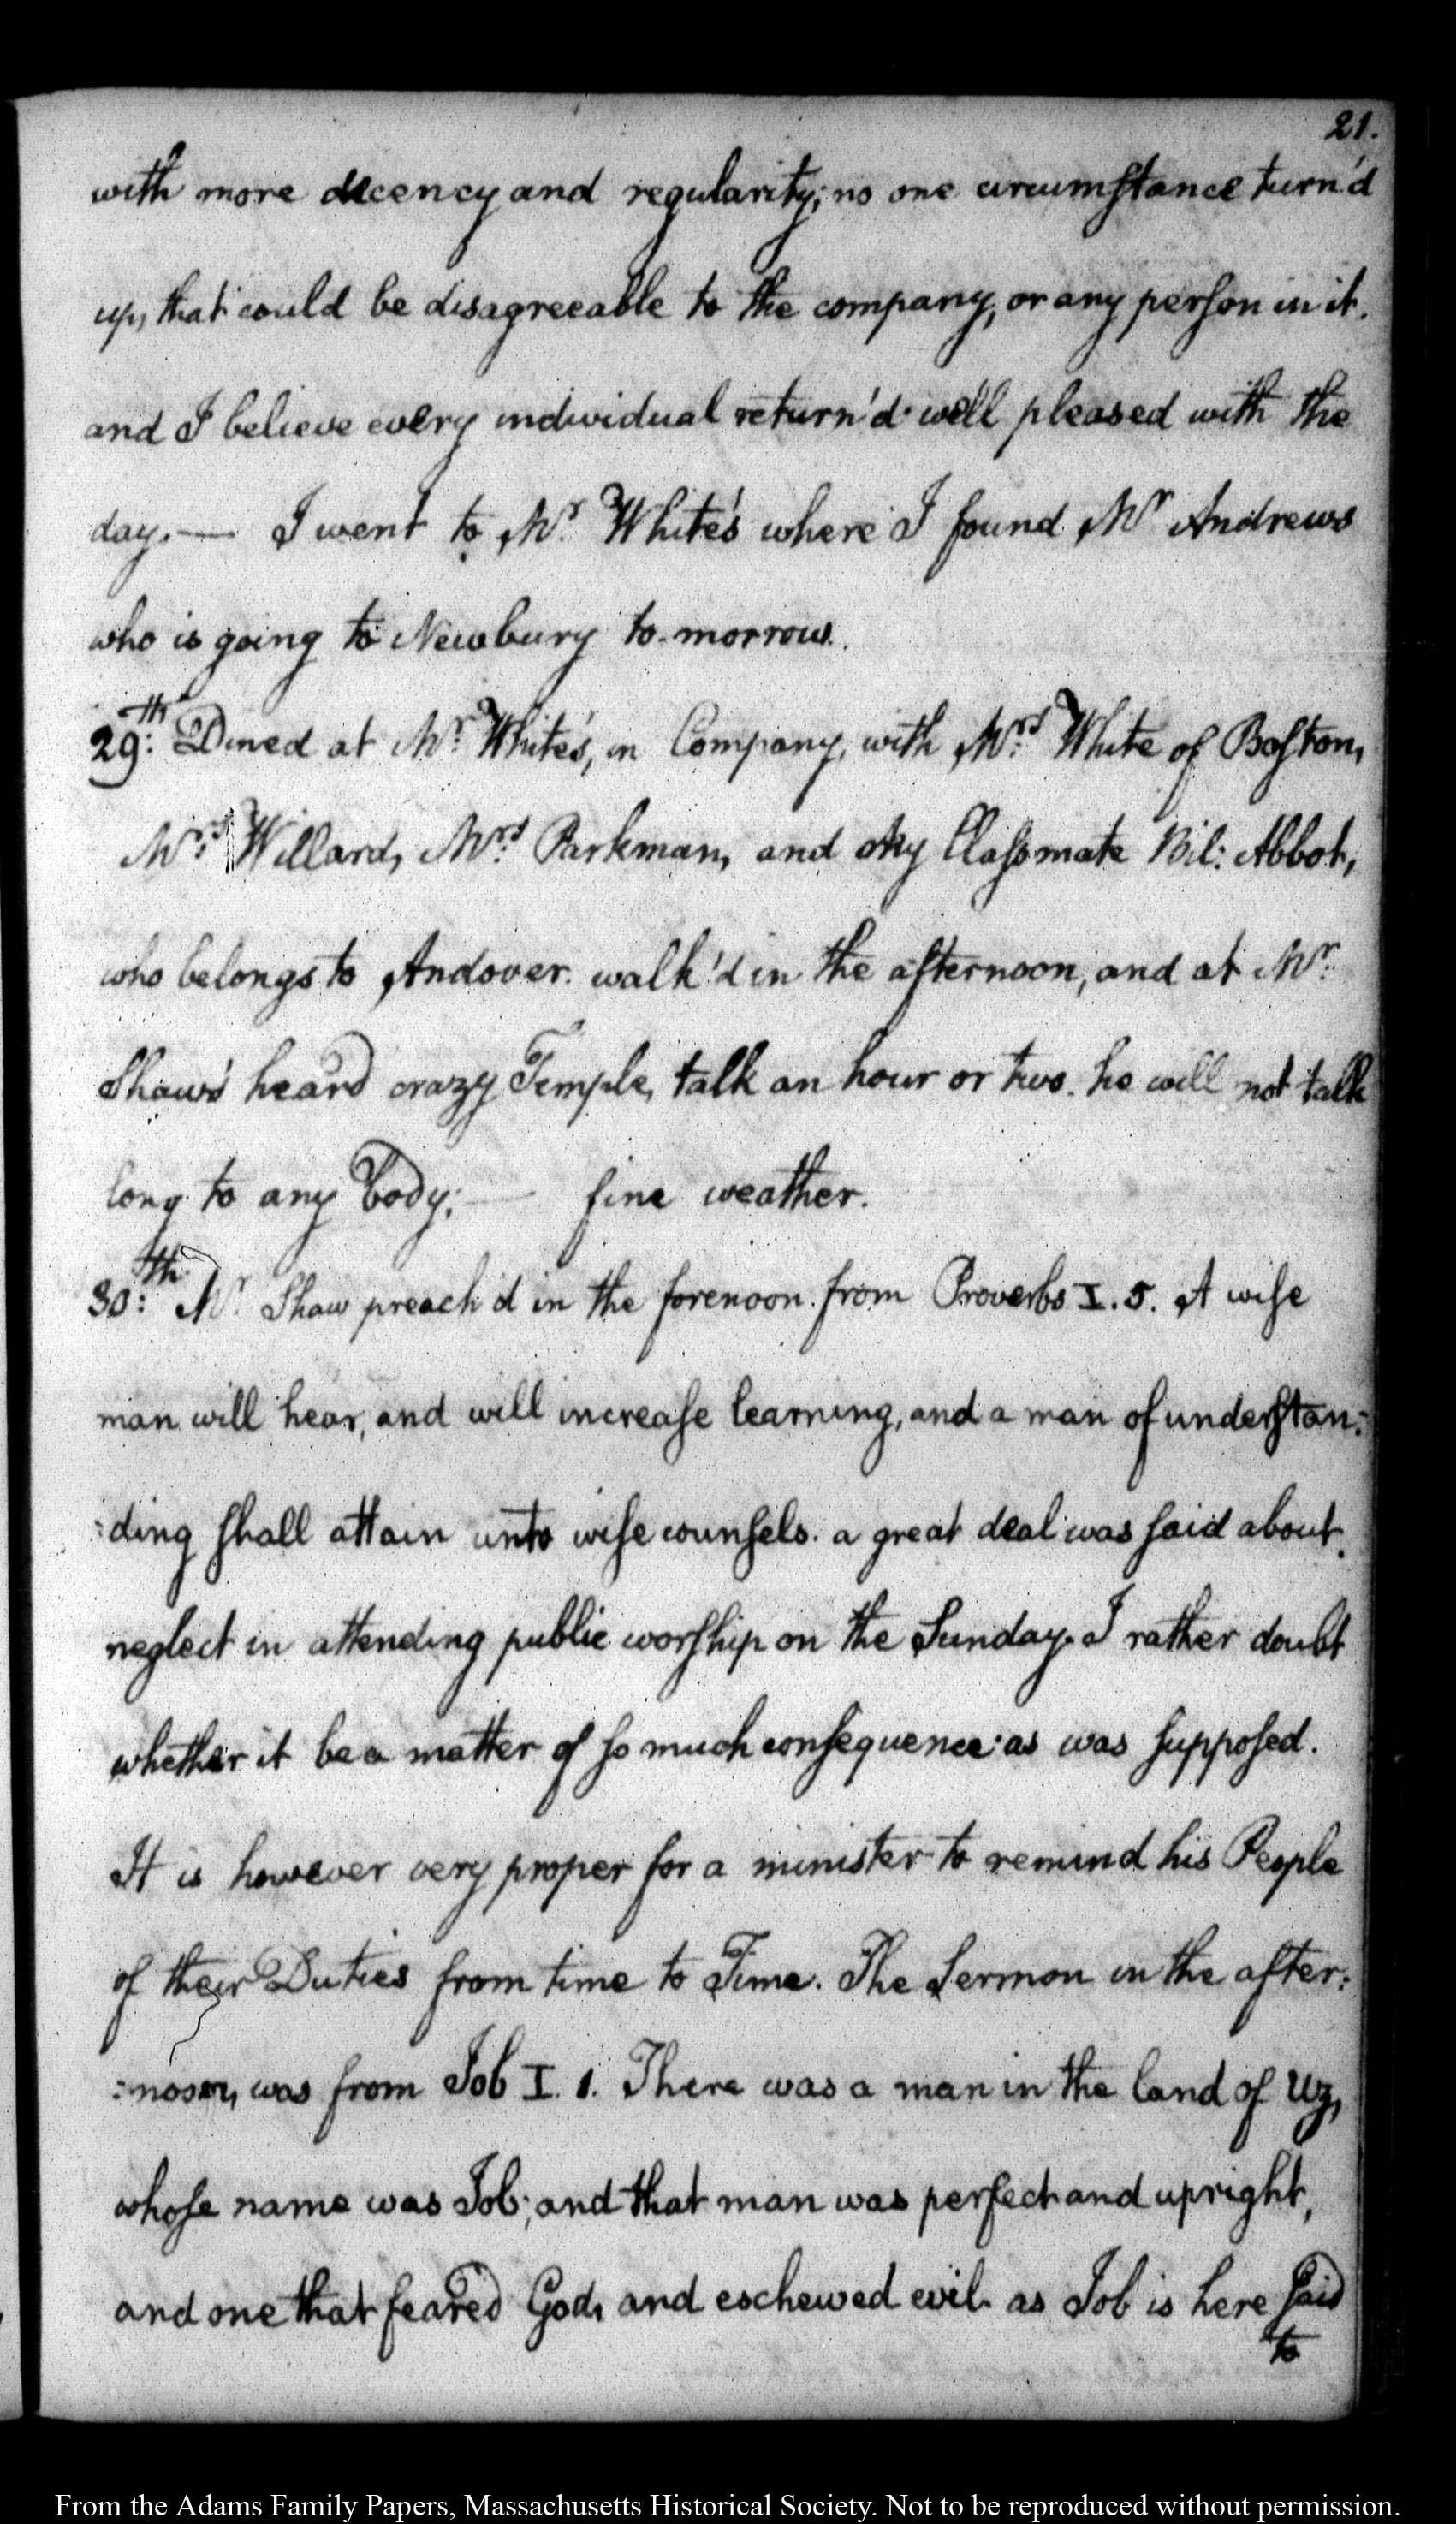 21.
with more decency and regularity; no one circumstance turn'd
up, that could be disagreeable to the company, or any person in it.
and I believe every individual return'd well pleased with the
day.— I went to Mr. White's where I found Mr Andrews
who is going to Newbury to-morrow.
29:th Dined at Mr. White's, in Company, with Mrs. White of Boston,
Mrs. Willard, Mrs. Parkman, and my Classmate Bil: Abbot,
who belongs to Andover. walk'd in the afternoon, and at Mr.
Shaw's heard crazy Temple, talk an hour or two. he will not talk
long to any body;— fine weather.
30:th Mr. Shaw preach'd in the forenoon. from Proverbs I. 5. A wise
man will hear, and will increase learning, and a man of understan:
:ding shall attain unto wise counsels. a great deal was said about
neglect in attending public worship on the Sunday. I rather doubt
whether it be a matter of so much consequence as was supposed.
It is however very proper for a minister to remind his People
of their Duties from time to Time. The Sermon in the after:
:noon, was from Job I. 1. There was a man in the land of Uz,
whose name was Job; and that man was perfect and upright,
and one that feared God, and eschewed evil. as Job is here said
to
From the Adams Family Papers, Massachusetts Historical Society. Not to be reproduced without permission.